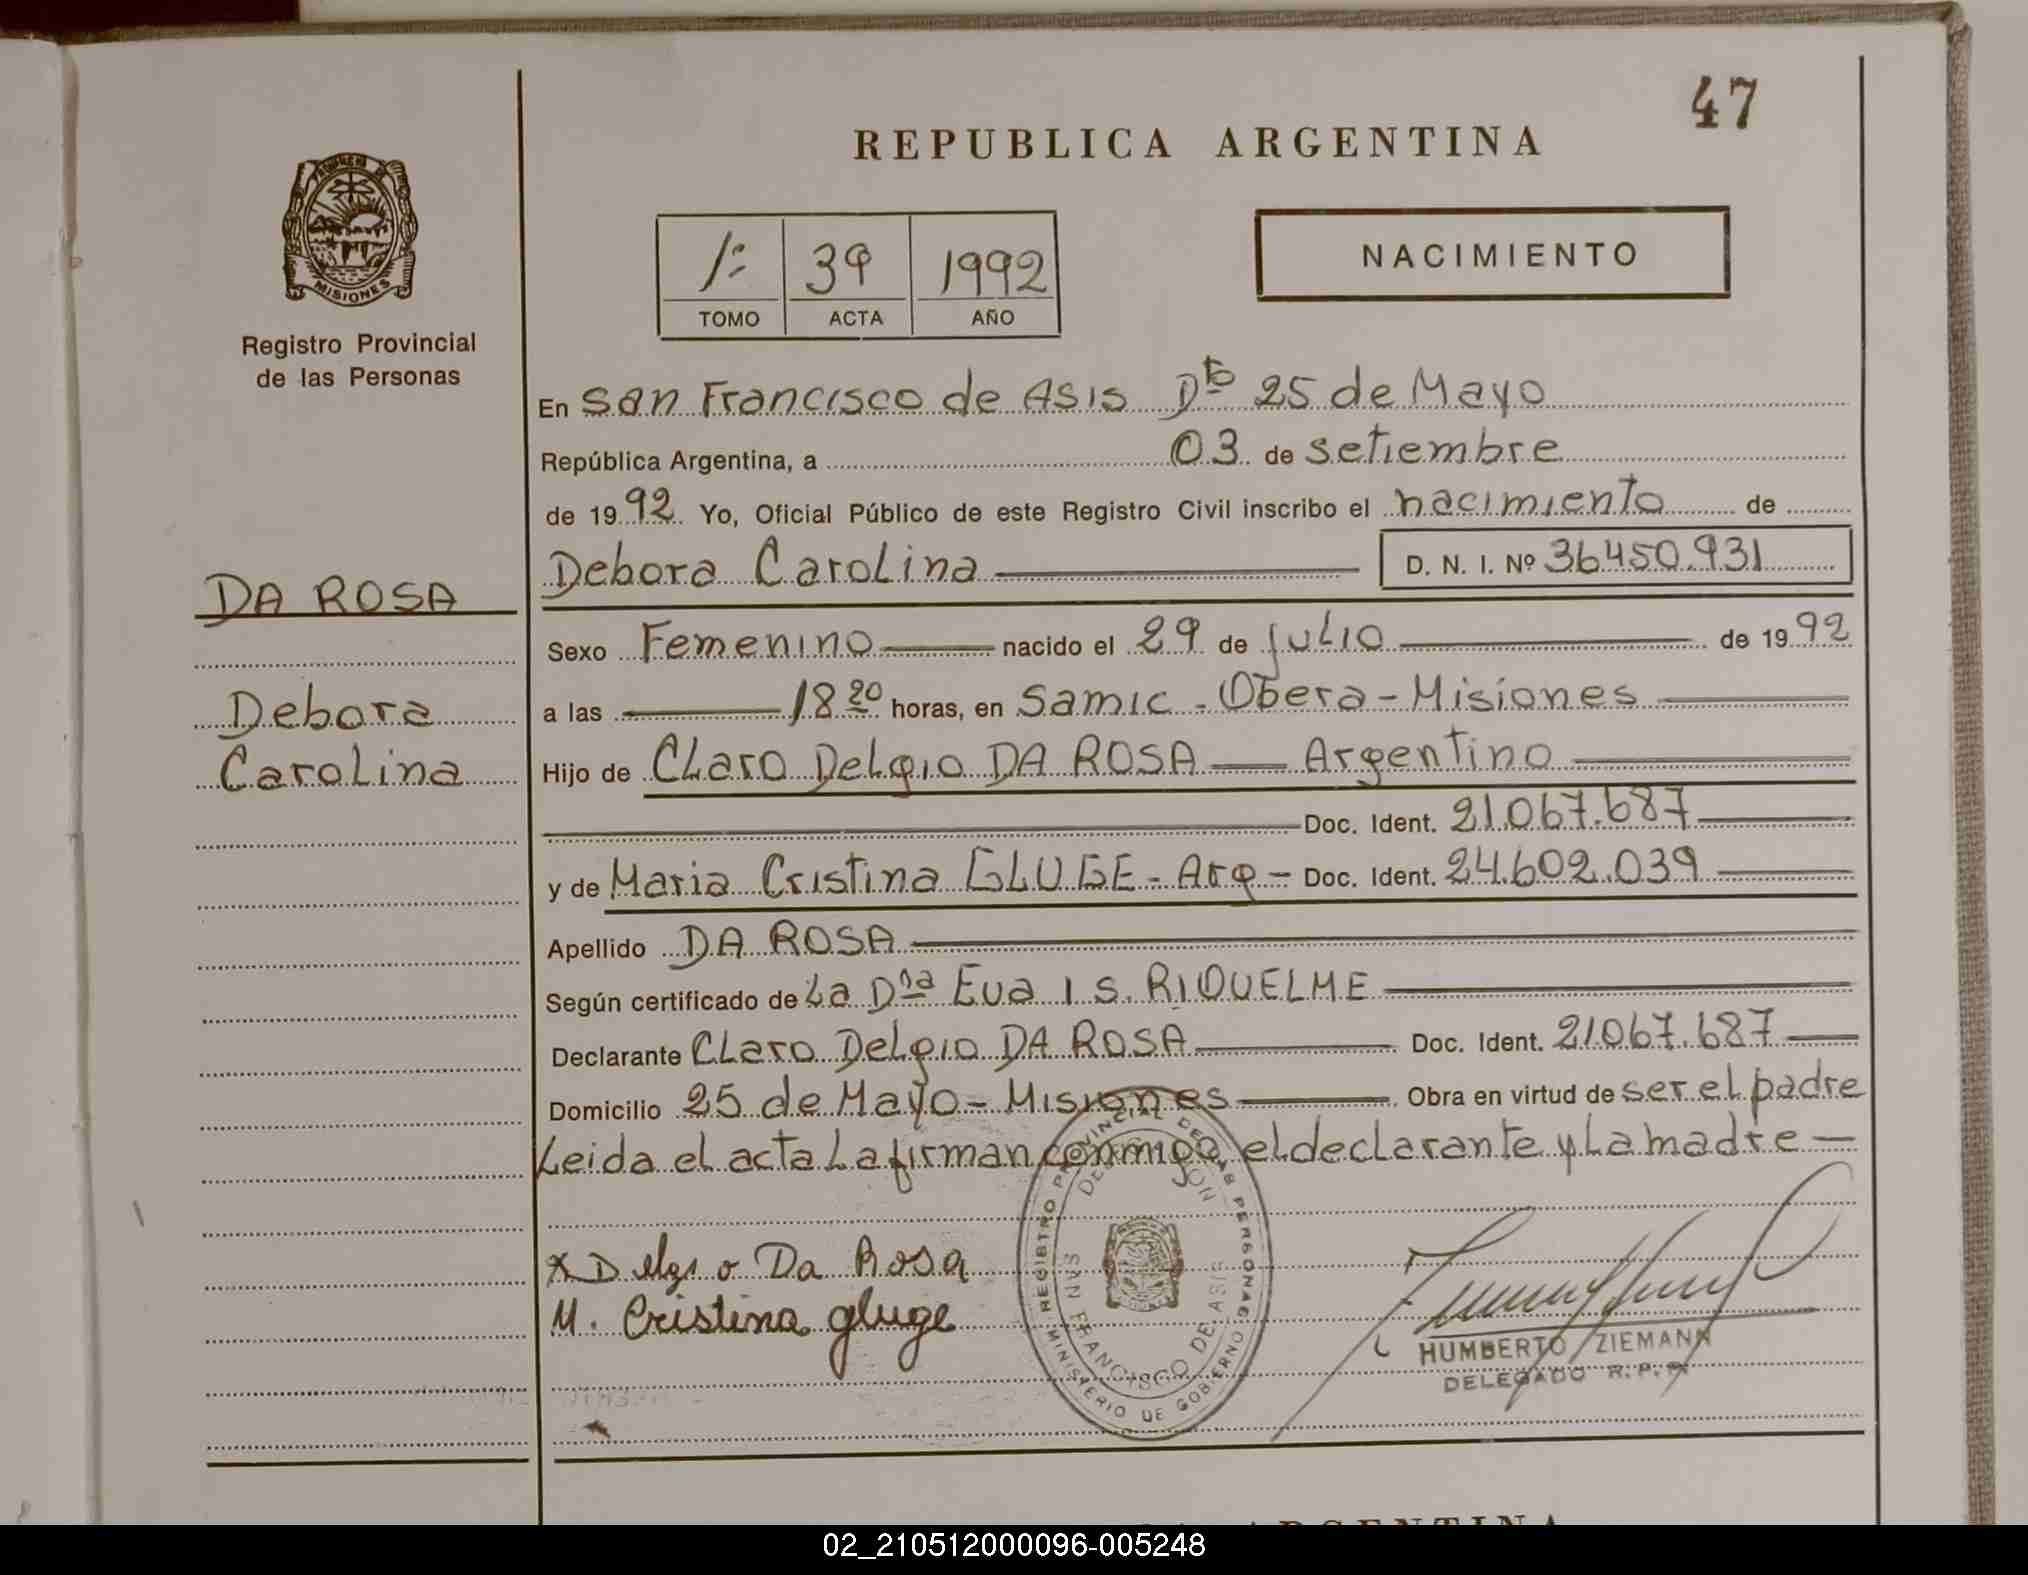 47
REPUBLICA ARGENTINA
MISIONES
Registro Provincial
de las Personas
1º 39 1992
TOMO ACTA AÑO
NACIMIENTO
En San Francisco de Asis Dto 25 de Mayo
República Argentina, a 03 de setiembre
de 1992 Yo, Oficial Público de este Registro Civil inscribo el nacimiento de
Debora Carolina D. N. I. Nº 36450.931
DA ROSA
Debora
Carolina
Sexo Femenino nacido el 29 de julio de 1992
a las 18 20 horas, en Samic - Obera - Misiones
Hijo de CLaro Delgio DA ROSA Argentino
Doc. Ident. 21.067.687
y de Maria Cristina GLUGE - Arg - Doc. Ident. 24.602.039
Apellido DA ROSA
Según certificado de La Dra Eva I S. RIQUELME
Declarante CLaro Delgio DA ROSA Doc. Ident. 21067.687
Domicilio 25 de Mayo - Misiones Obra en virtud de ser el padre
Leida el acta La firman conmigo el declarante y La madre -
x Delgio Da Rosa
M. Cristina gluge
REGISTRO PROVINCIAL DE LAS PERSONAS
MINISTERIO DE GOBIERNO
SAN FRANCISCO DE ASIS
HUMBERTO ZIEMANN
DELEGADO R.P.P.
ARGENTINA
02_210512000096-005248